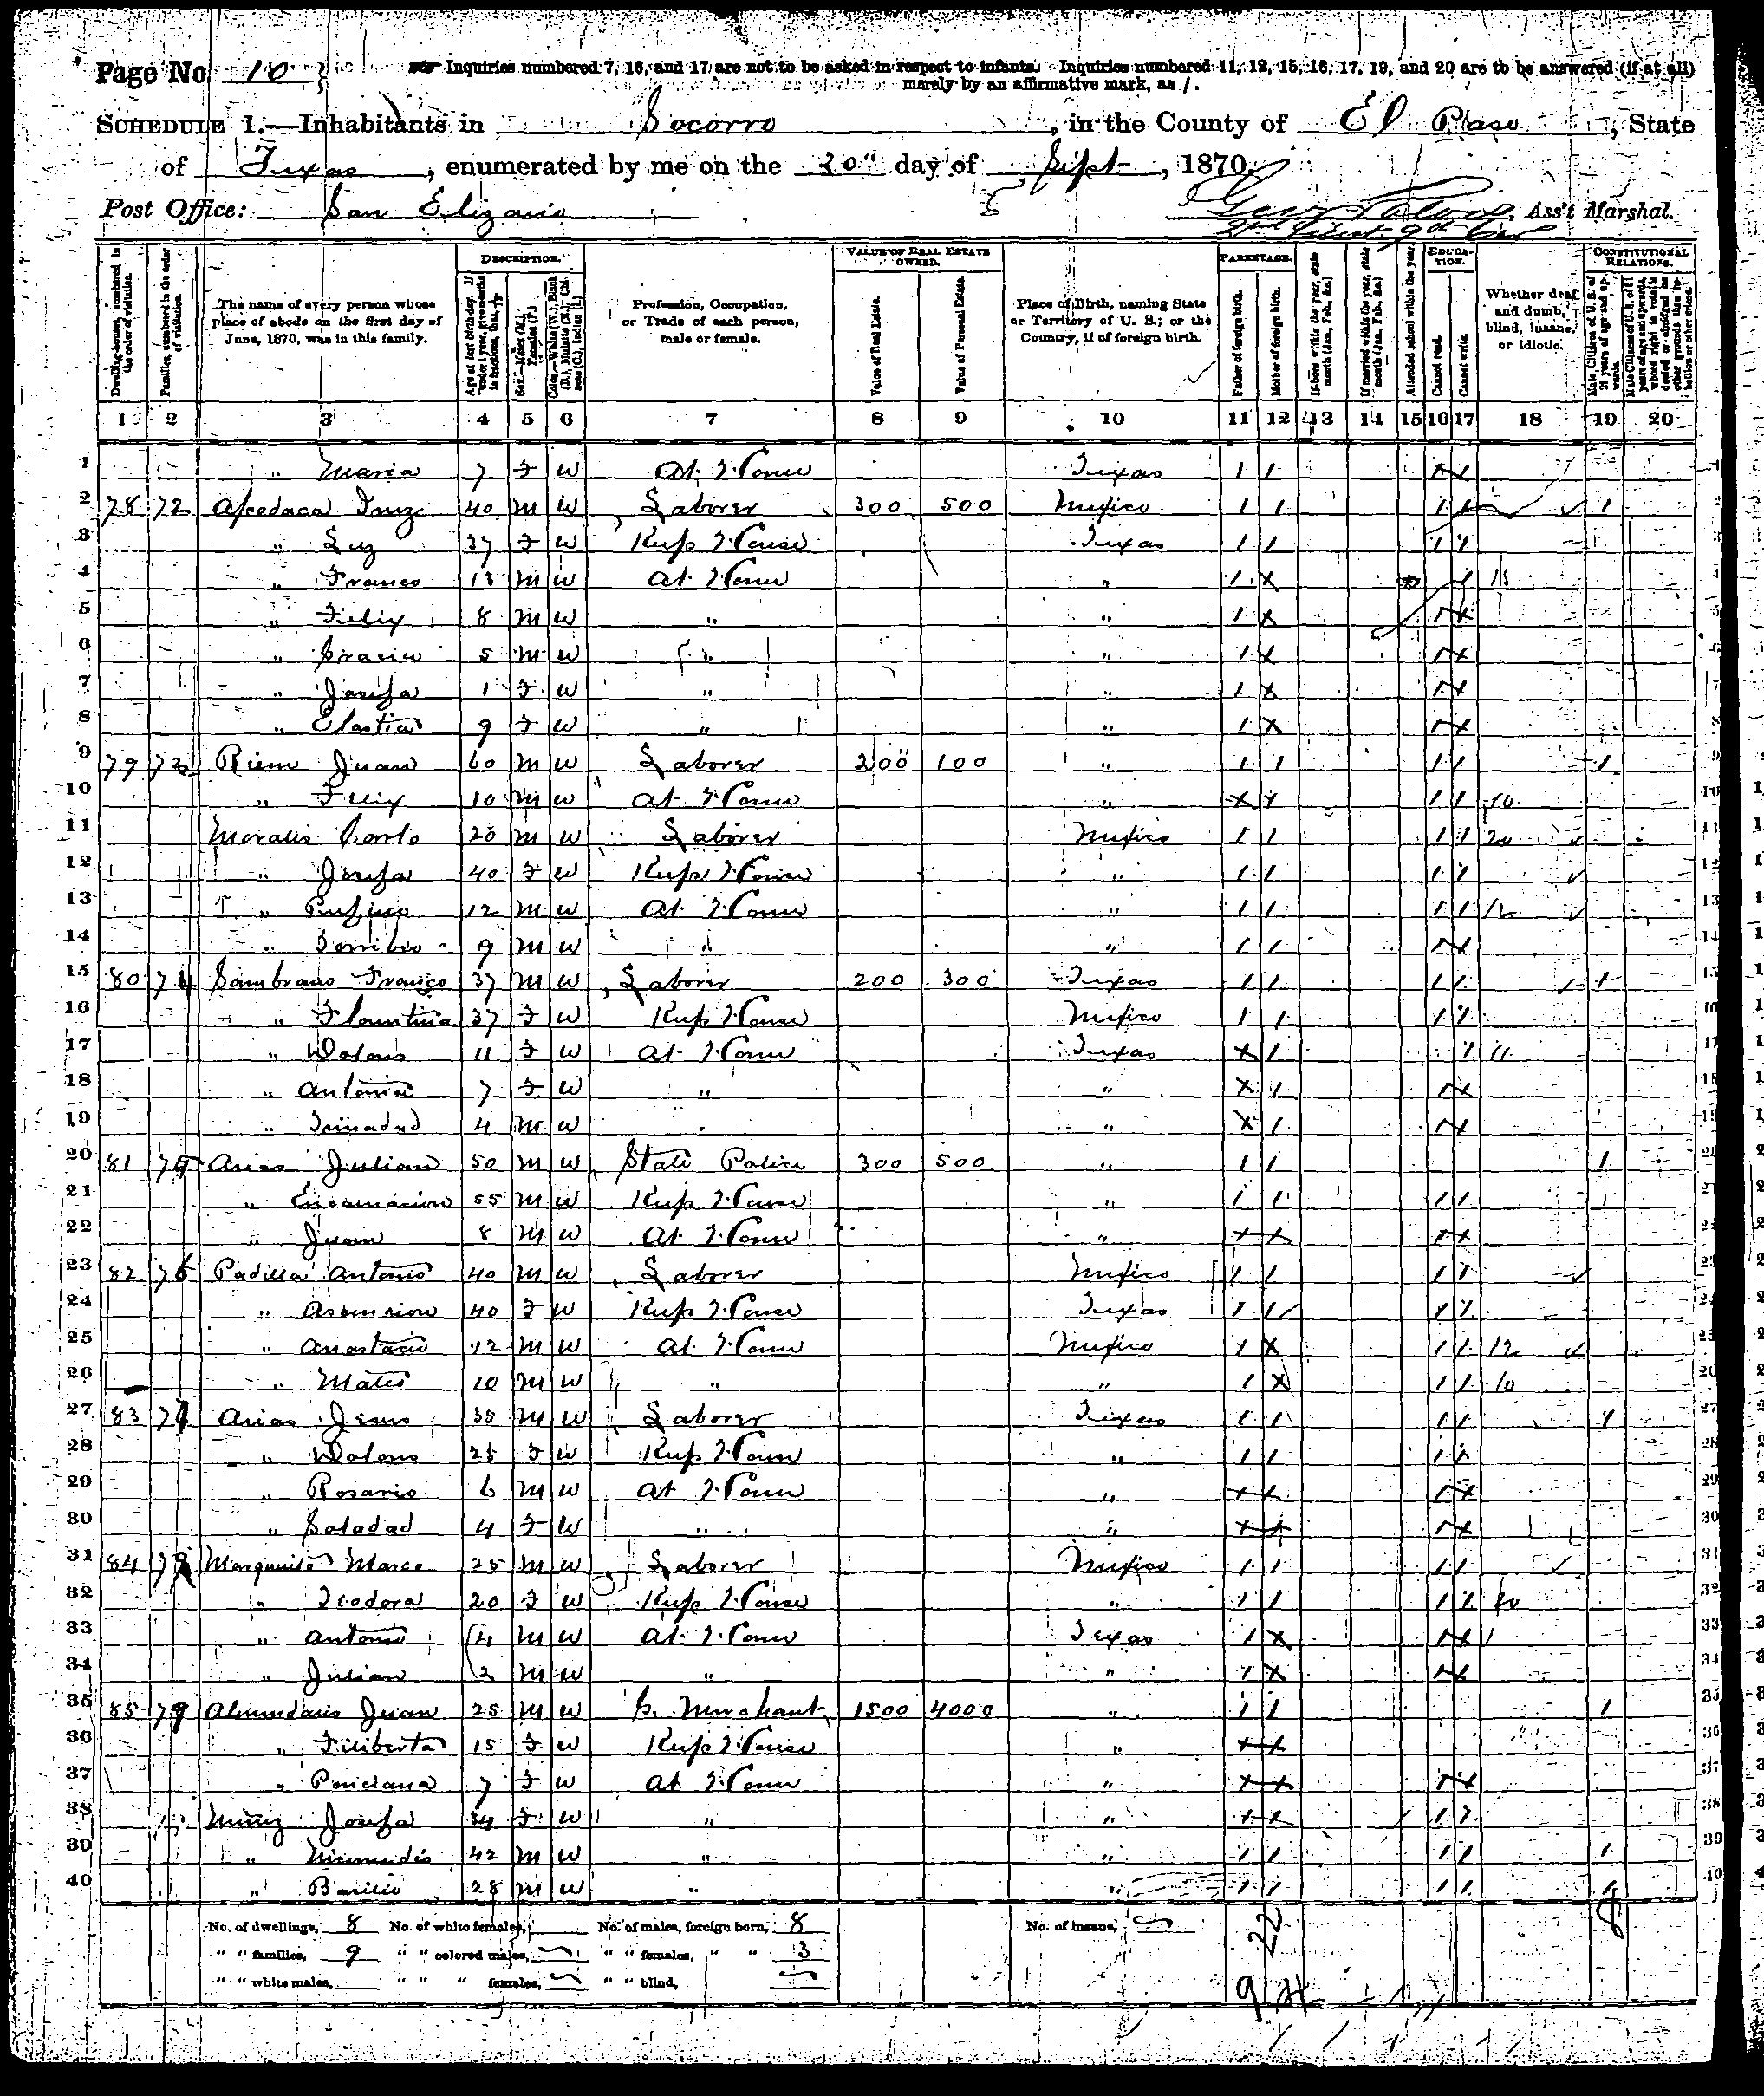 Page No 10
Inquiries numbered 7, 16, and 17 are not to be asked in respect to infants. Inquiries numbered 11, 12, 15, 16, 17, 19, and 20 are to be answered (if at all)
merely by an affirmative mark, as /.
SCHEDULE 1.—Inhabitants in Socorro, in the County of El Paso, State
of Texas, enumerated by me on the 20" day of Sept, 1870.
Post Office: San Elizario Ass't Marshal.
2nd Lieut 9th Cav
DESCRIPTION. VALUE OF REAL ESTATE OWNED. PARENTAGE. EDUCATION. CONSTITUTIONAL RELATIONS.
Dwelling-houses, numbered in the order of visitation.
Families, numbered in the order of visitation.
The name of every person whose place of abode on the first day of June, 1870, was in this family.
Age at last birth-day. If under 1 year, give months in fractions, thus,
Sex.—Males (M.), Females (F.)
Color.—White (W.), Black (B.), Mulatto (M.), Chinese (C.), Indian (I.)
Profession, Occupation, or Trade of each person, male or female.
Value of Real Estate.
Value of Personal Estate.
Place of Birth, naming State or Territory of U. S.; or the Country, if of foreign birth.
Father of foreign birth.
Mother of foreign birth.
If born within the year, state month (Jan., Feb., &c.)
If married within the year, state month (Jan., Feb., &c.)
Attended school within the year.
Cannot read.
Cannot write.
Whether deaf and dumb, blind, insane, or idiotic.
Male Citizens of U. S. of 21 years of age and upwards.
Male Citizens of U. S. of 21 years of age and upwards, whose right to vote is denied or abridged on other grounds than rebellion or other crime.
1 2 3 4 5 6 7 8 9 10 11 12 13 14 15 16 17 18 19 20
1 " Maria 7 F W At Home Texas / / / /
2 78 72 Apodaca 40 M W Laborer 300 500 Mexico / / / / /
3 " Luz 37 F W Keeps House Texas / / / /
4 " Franco 13 M W At Home " / X /
5 " Felix 8 M W " " / X
6 " 5 M W " " / X
7 " Josefa 1 F W " " / X
8 " 9 F W " " / X
9 79 73 Juan 60 M W Laborer 200 100 " / / / / /
10 " Felix 10 M W At Home " X X / / 10
11 Morales 20 M W Laborer Mexico / / / / 20
12 " Josefa 40 F W Keeps House " / / / /
13 " Rufino 12 M W At Home " / / / / 12
14 " Torribio 9 M W " " / /
15 80 74 Sambrano Franco 37 M W Laborer 200 300 Texas / / / / /
16 " Florentina 37 F W Keeps House Mexico / / / /
17 " Dolores 11 F W At Home Texas X / / 11
18 " Antonia 7 F W " " X /
19 " Trinadad 4 M W " X /
20 81 75 Arias Julian 50 M W State Police 300 500 " / / /
21 " Encarnacion 55 M W Keeps House " / / / /
22 " Juan 8 M W At Home " X X
23 82 76 Padilla Antonio 40 M W Laborer Mexico / / / /
24 " Asencion 40 F W Keeps House Texas / / / /
25 " Anastacio 12 M W At Home Mexico / X / / 12
26 " Mateo 10 M W " " / X / / 10
27 83 77 Arias Jesus 35 M W Laborer Texas / / / / /
28 " Dolores 25 F W Keeps House " / / / /
29 " Rosario 6 M W At Home " X X
30 " Soladad 4 F W " " X X
31 84 78 Marco 25 M W Laborer Mexico / / / /
32 " Teodora 20 F W Keeps House " / / / / 20
33 " Antonio 4 M W At Home Texas / X
34 " Julian 2 M W " " / X
35 85 79 Juan 25 M W Merchant 1500 4000 " / / /
36 " Filiberta 15 F W Keeps House " X X
37 " Ponciana 7 F W At Home " X X
38 Josefa 34 F W " " / / / /
39 " 42 M W " " / / / / /
40 " Basilio 28 M W " " / / / / /
No. of dwellings, 8 No. of white females, No. of males, foreign born, 8 No. of insane,
" " families, 9 " " colored males, " " females, " " 3
" " white males, " " " females, " " blind,
22
8